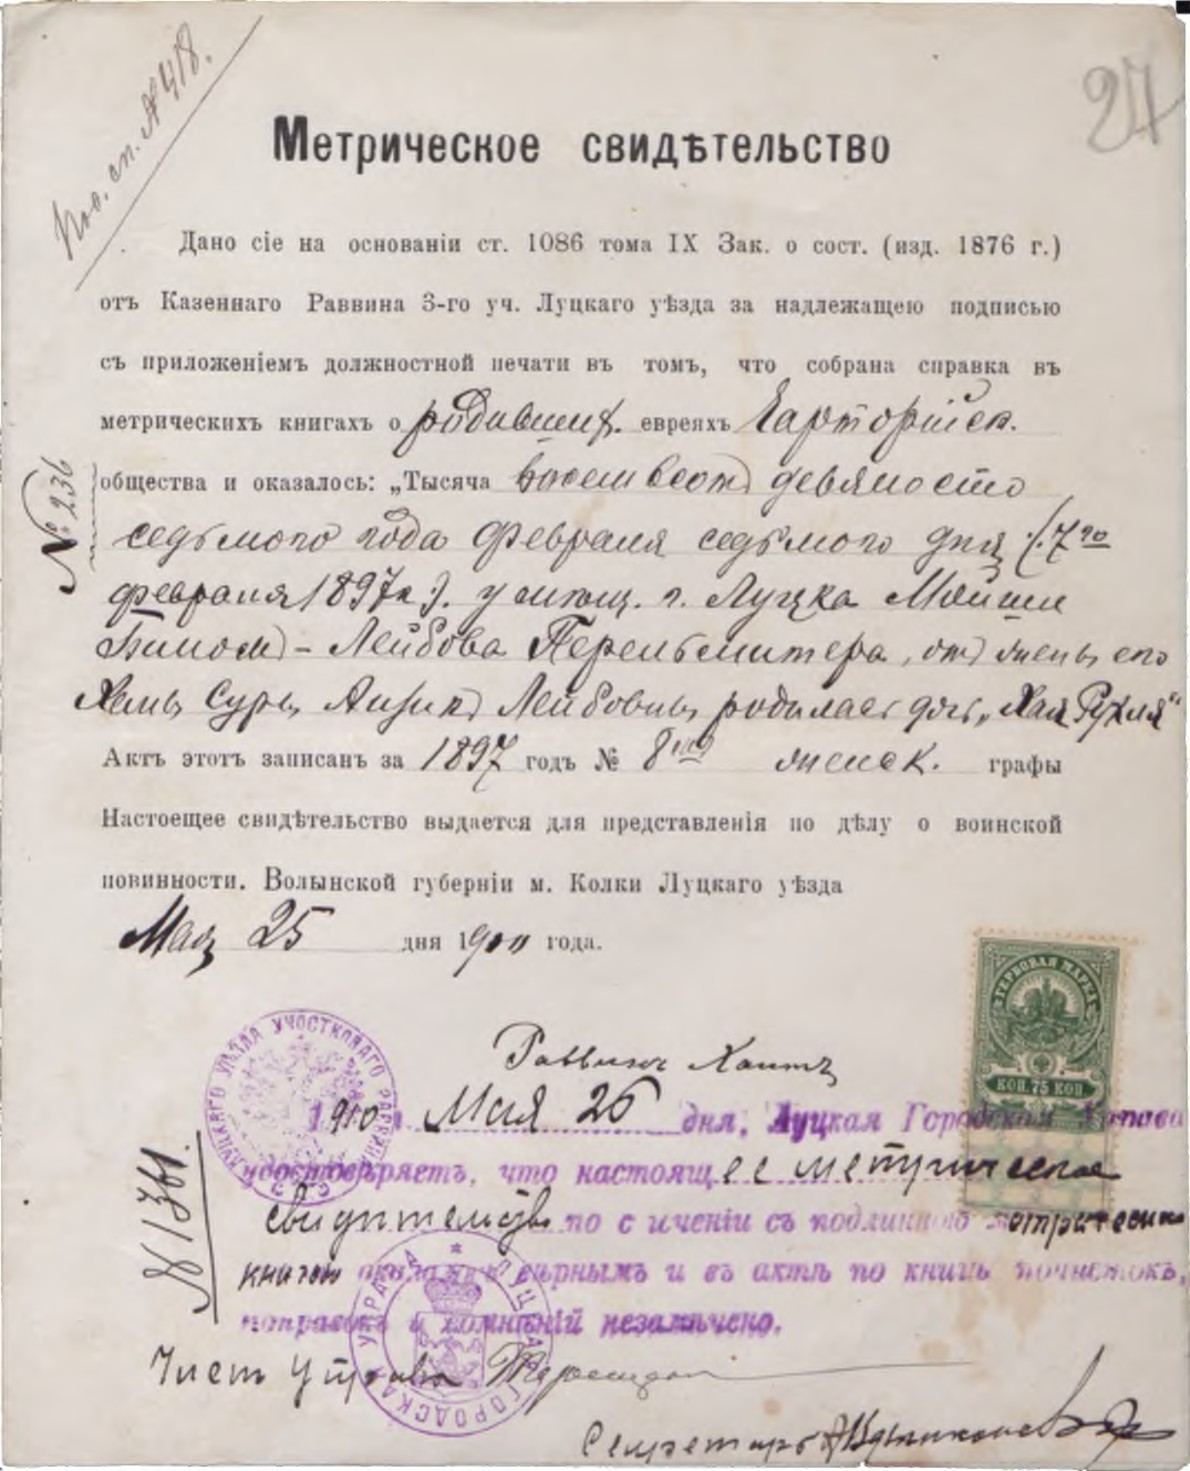 24
Метрическое свидѣтельство
Дано сіе на основаніи ст. 1086 тома IX Зак. о сост. (изд. 1876 г.)
отъ Казеннаго Раввина 3-го уч. Луцкаго уѣзда за надлежащею подписью
съ приложеніемъ должностной печати въ томъ, что собрана справка въ
метрическихъ книгахъ о родивших. евреяхъ Чарторійск.
№ 236
общества и оказалось: „Тысяча восемьсотъ девяносто
седьмого года Февраля седьмого дня /:7го
февраля 1897 г:/. у мѣщ. г. Луцка Мойши
Лейбова Перельмитера, отъ жены его
Суры Лейбовны родилась дочь „Хая Рухля"
Актъ этотъ записанъ за 1897 годъ № 8 женск. графы
Настоещее свидѣтельство выдается для представленія по дѣлу о воинской
повинности. Волынской губерніи м. Колки Луцкаго уѣзда
Мая 25 дня 1910 года.
ЛУЦКАГО УѢЗДА УЧОСТКОВАГО РАВВИНА
ГЕРБОВАЯ МАРКА
КОП. 75 КОП
Раввинъ
1910 г. Мая 26 дня, Луцкая Городская Управа
удостовѣряетъ, что настоящее метрическое
свидѣтельство по с иченіи съ подлинною метрическою
книгою оказалось вѣрнымъ и въ актѣ по книгѣ почистокъ,
поправокъ и сомнѣній незамѣчено.
ЛУЦКАЯ ГОРОДСКАЯ УПРАВА
Член Управы
Секретарь